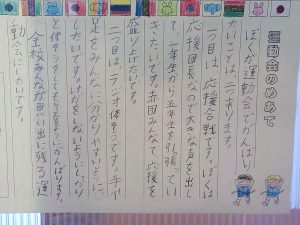 運動会のめあて
ぼくが運動会でがんばり
たいことは、二つあります。
一つ目は、応援合戦です。ぼくは
応援団長なので大きな声を出し
て、一年生から五年生を引っ張ってい
きたいです。赤団みんなで応援を
盛り上げたいです。
二つ目は、ラジオ体そうです。手や
足をみんなに分かりやすいように、
したいです。けがをしないようにしっかり
と体そうをしてもらえるようにがんばります。
全校みんなが思い出に残る運
動会にしたいです。